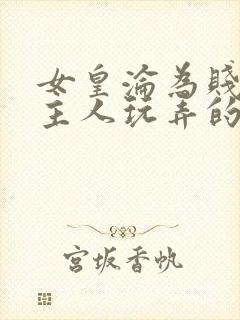 女皇淪為賤
主人玩弄的
宮坂香帆